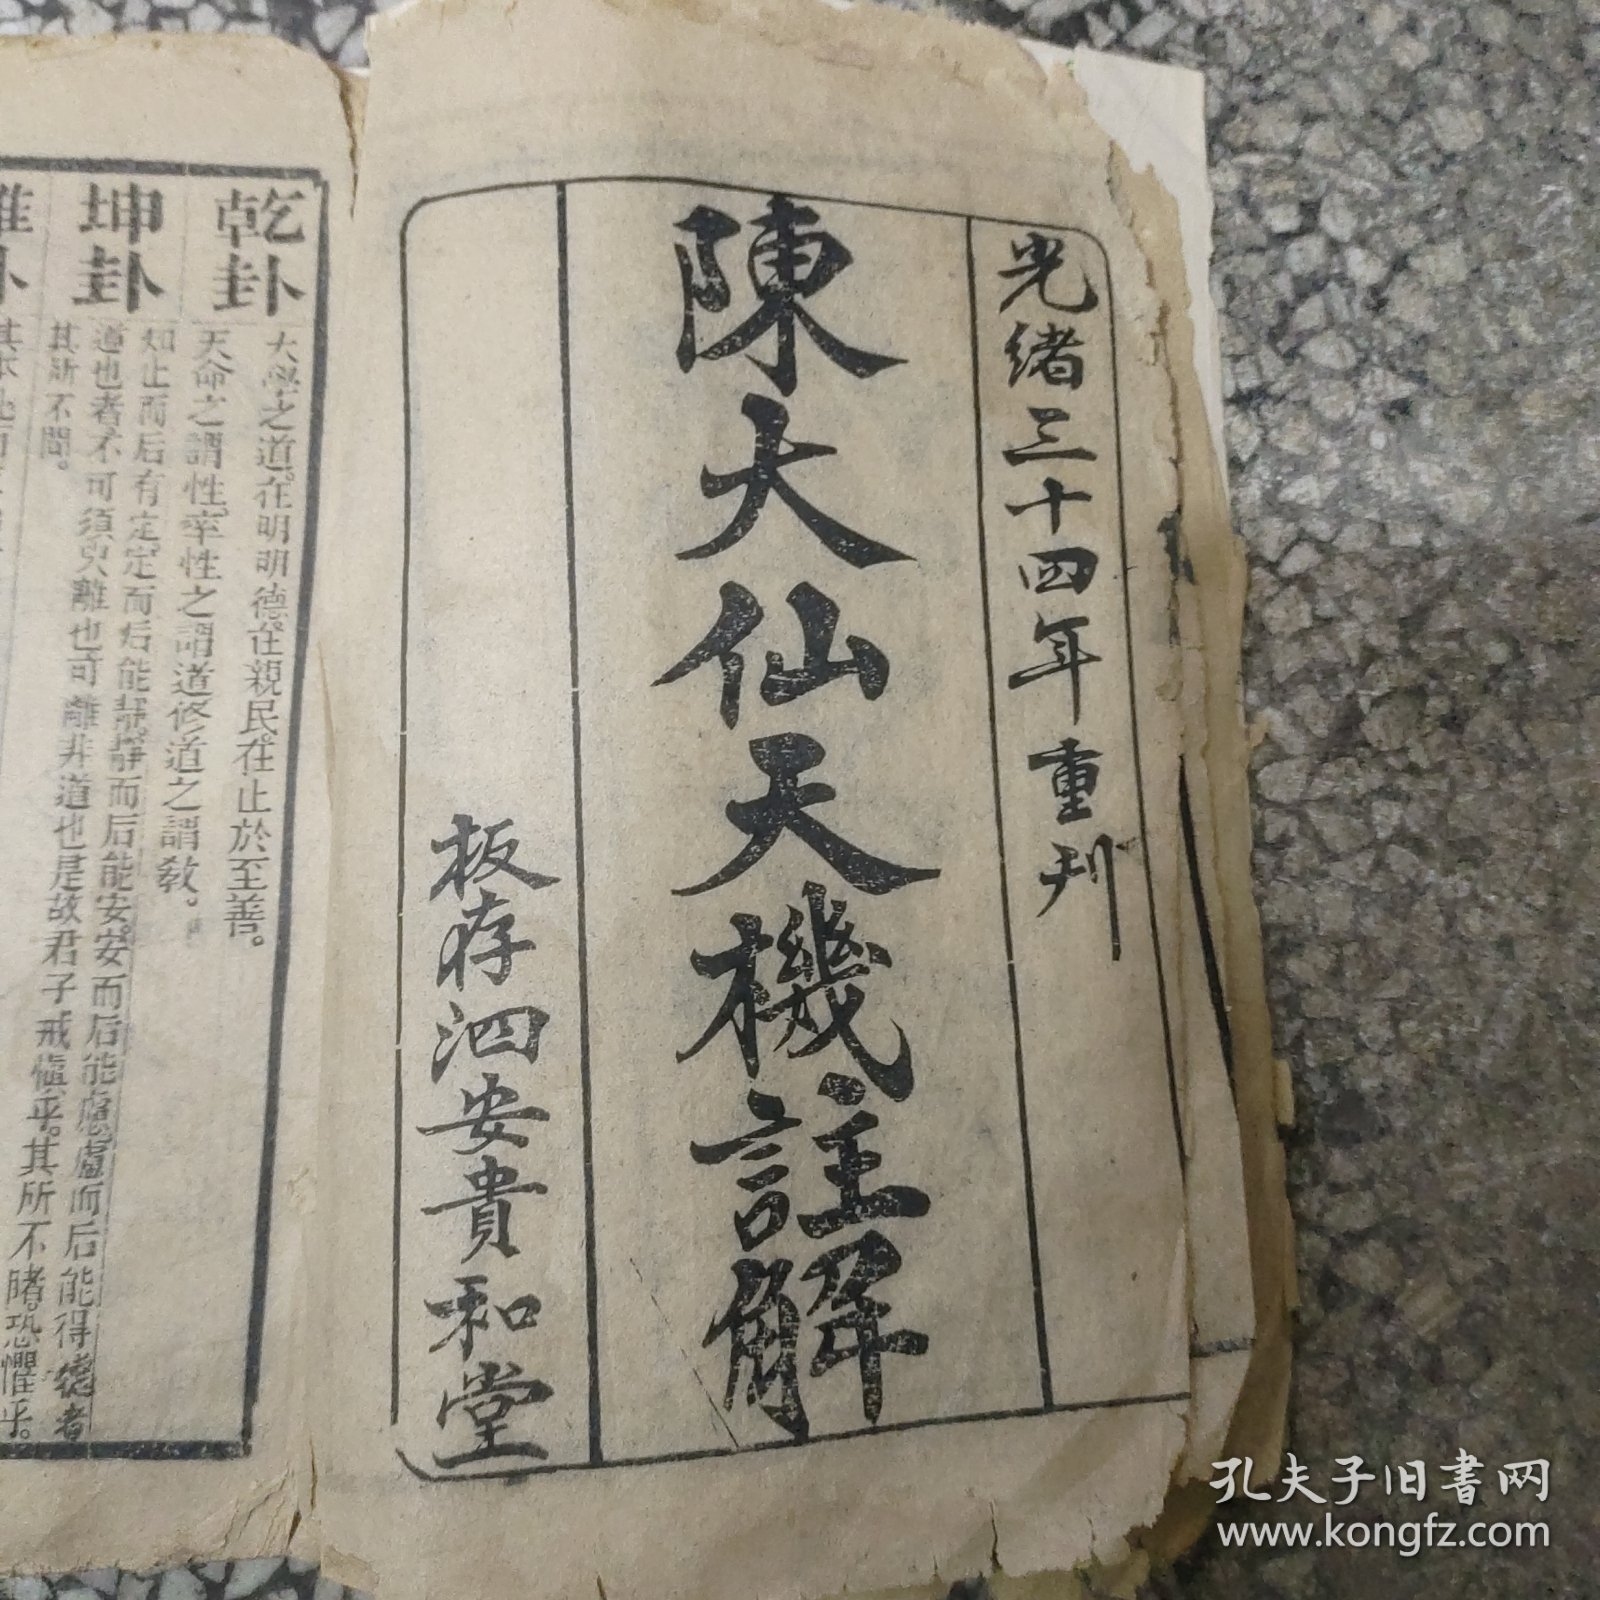 光緒三十四年重刋
陳大仙天機註解
板存泗安貴和堂
乾卦
大學之道。在明明德。在親民。在止於至善。
天命之謂性。率性之謂道。修道之謂教。
坤卦
知止而后有定。定而后能靜。靜而后能安。安而后能慮。慮而后能得
道也者。不可須臾離也。可離非道也。是故君子戒慎乎。其所不睹。恐懼乎。
其所不聞。
孔夫子旧書网
www.kongfz.com